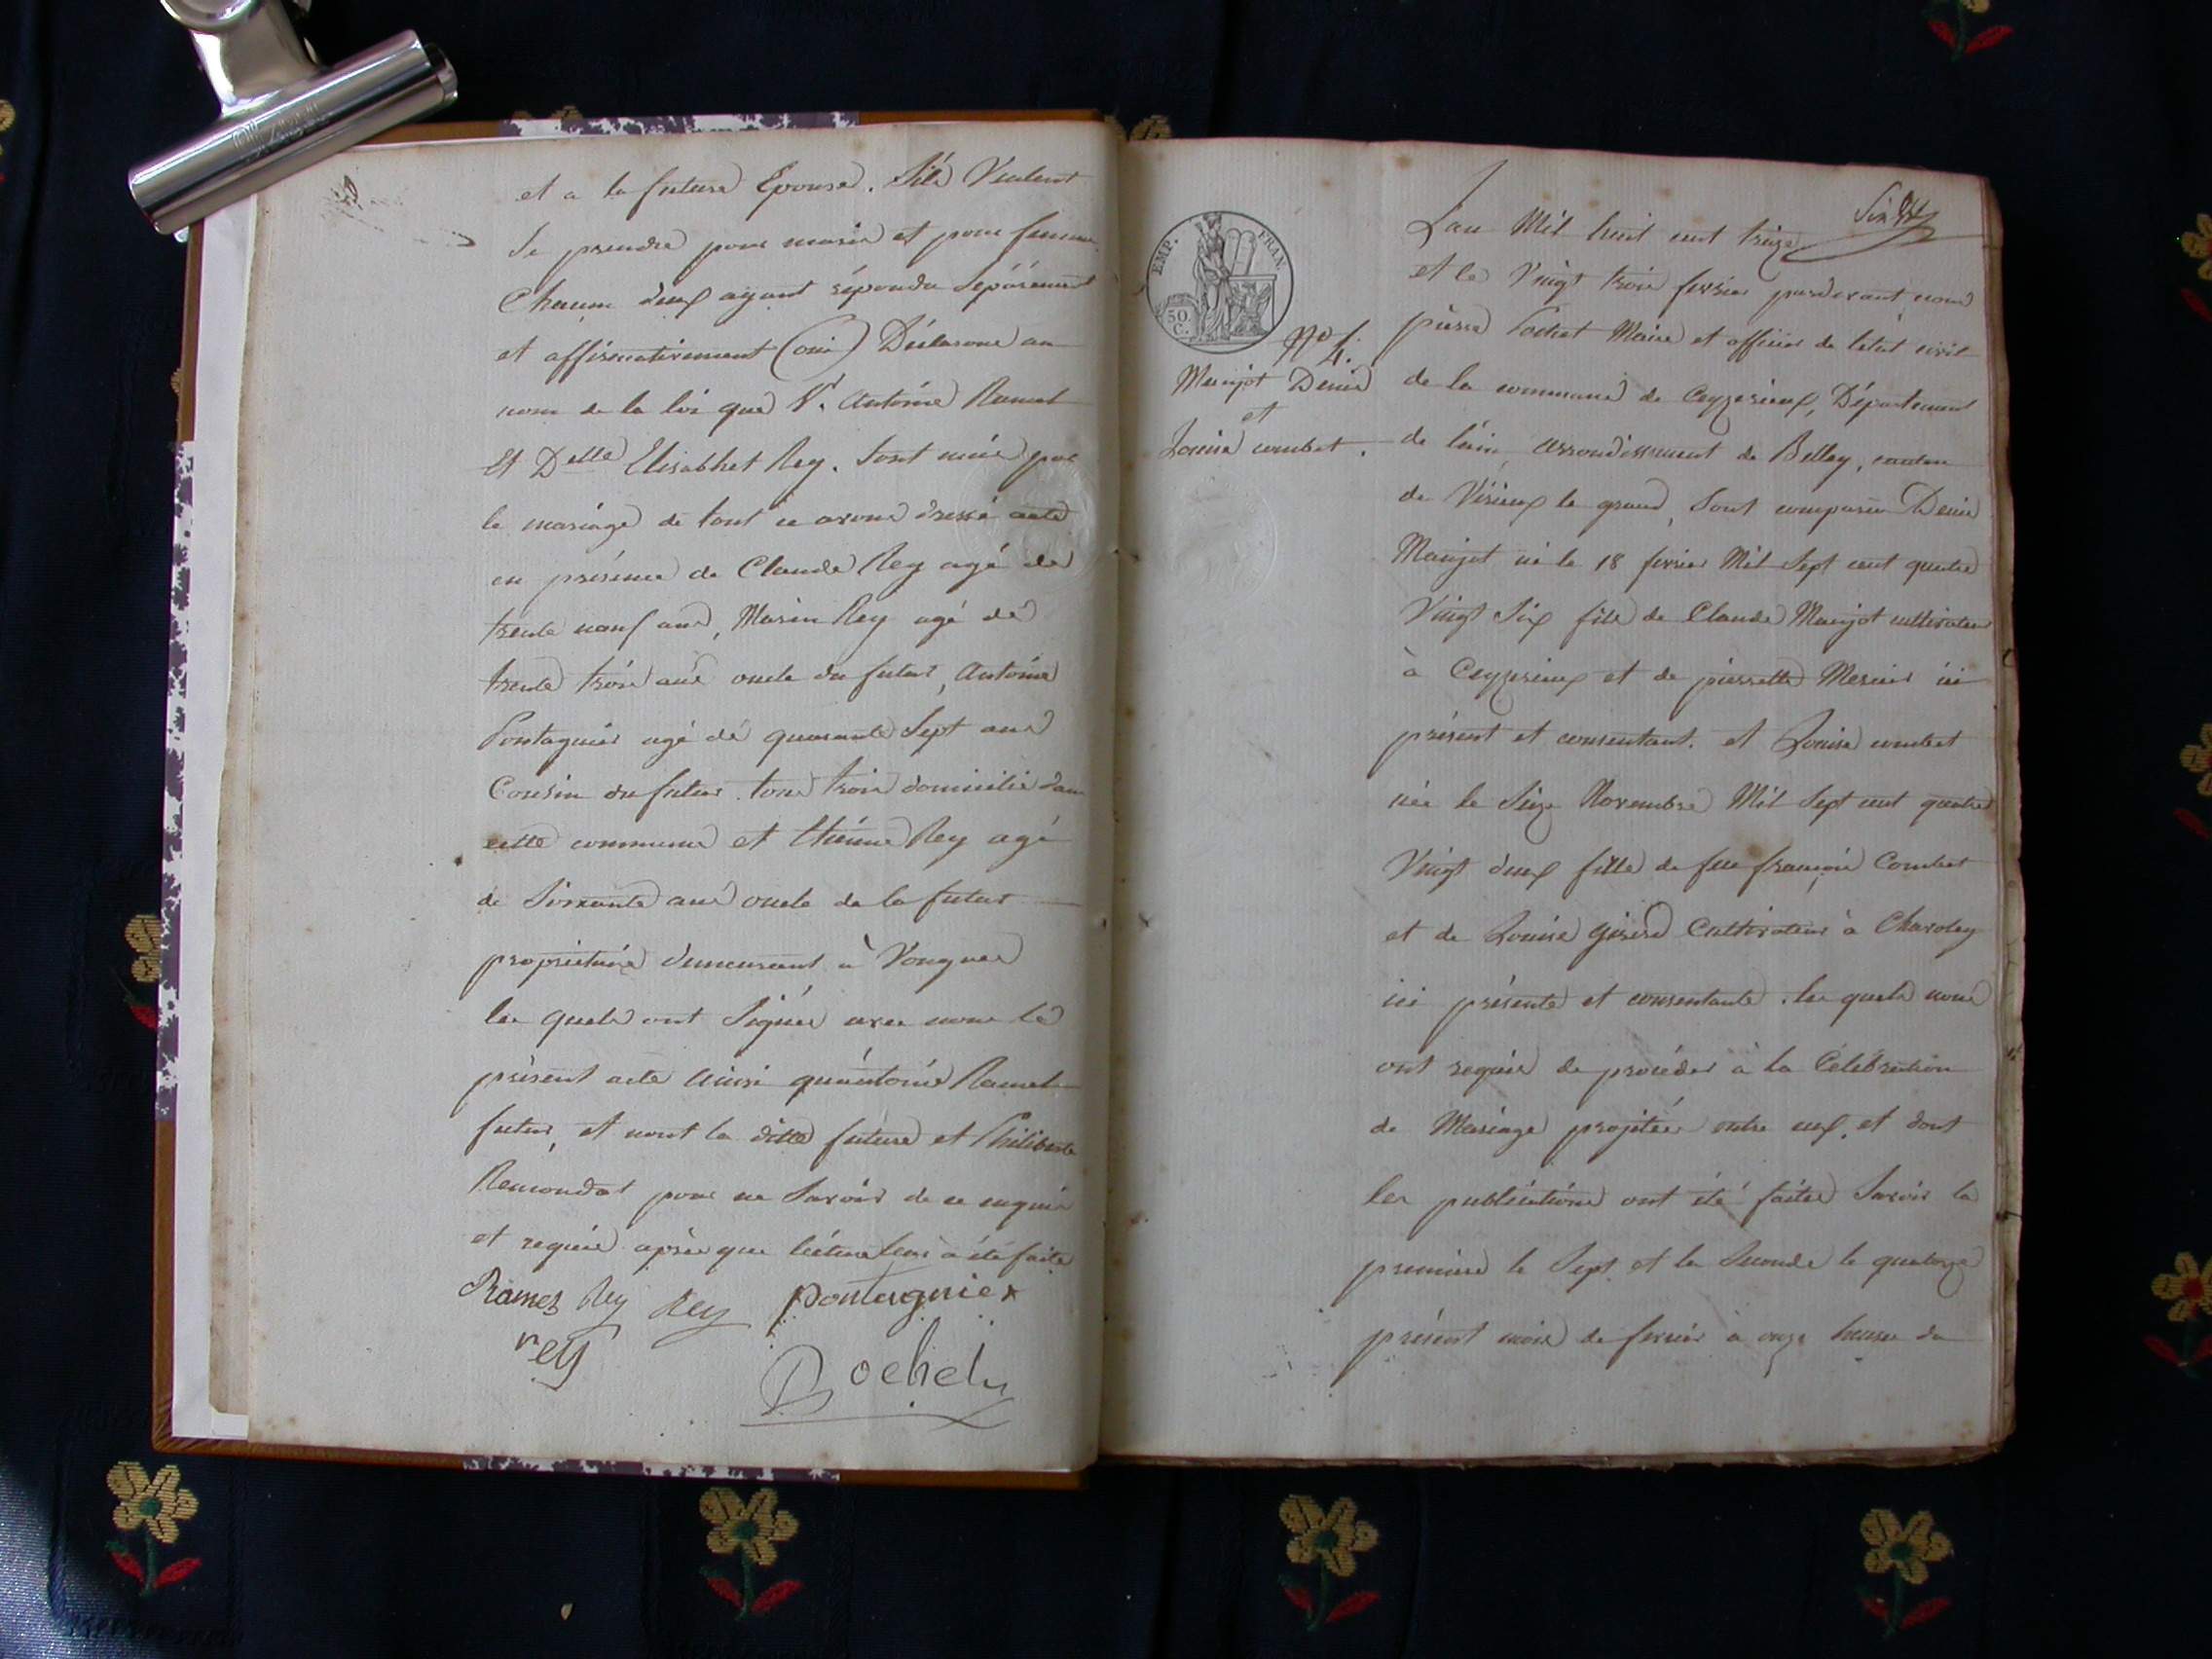 et a la future Epouse. S'ils Veulent
Se prendre pour maris et pour femme
Chacun deux ayant répondu Séparément
et affirmativement (oui) Déclarons au
nom de la loi que S. Antoine Ramel
Et Delle Elisabhet Rey. Sont unis par
le mariage de tout ce avons dressé acte
en présence de Claude Rey agé de
trente neuf ans, Marin Rey agé de
trente trois ans oncle du futur, Antoine
Pontagnier agé de quarante Sept ans
Cousin du futur. tous trois domicilié dans
cette commune et Etienne Rey agé
de Soixante ans oncle de la futur
propriétaire demeurant à Vongnes
les quels ont Signés avec nous le
présent acte ainsi qu'antoine Ramel
futur, et nont la ditte future et Philiberte
Remondat pour ne Savoir de ce enquis
et requis après que lecture leur à été faite
Ramel Rey Rey pontagnier
rey
Bochet
EMP. FRAN.
50 C.
No 4.
Manjot Denis
et
Louise combet.
Lan Mil huit cent treize
et le Vingt trois fevrier pardevant nous
pierre Bochet Maire et officier de létat civil
de la commune de Ceyzerieux, Département
de lain arrondissement de Belley, canton
de Virieux le grand, Sont comparus Denis
Manjot né le 18 fevrier Mil Sept cent quatre
Vingt Six fils de Claude Manjot cultivateur
à Ceyzerieux et de pierrette Mesnir ici
présent et consentant. et Louise combet
née le Seize Novembre Mil Sept cent quatre
Vingt deux fille de feu françois Combet
et de Louise Cultivateur à Charoley
ici présente et consentante. les quels nous
ont requis de procéder à la Célébration
de Mariage projetée entre eux, et dont
les publications ont été faites Savoir la
première le Sept et la Seconde le quatorze
présent mois de fevrier à onze heures du